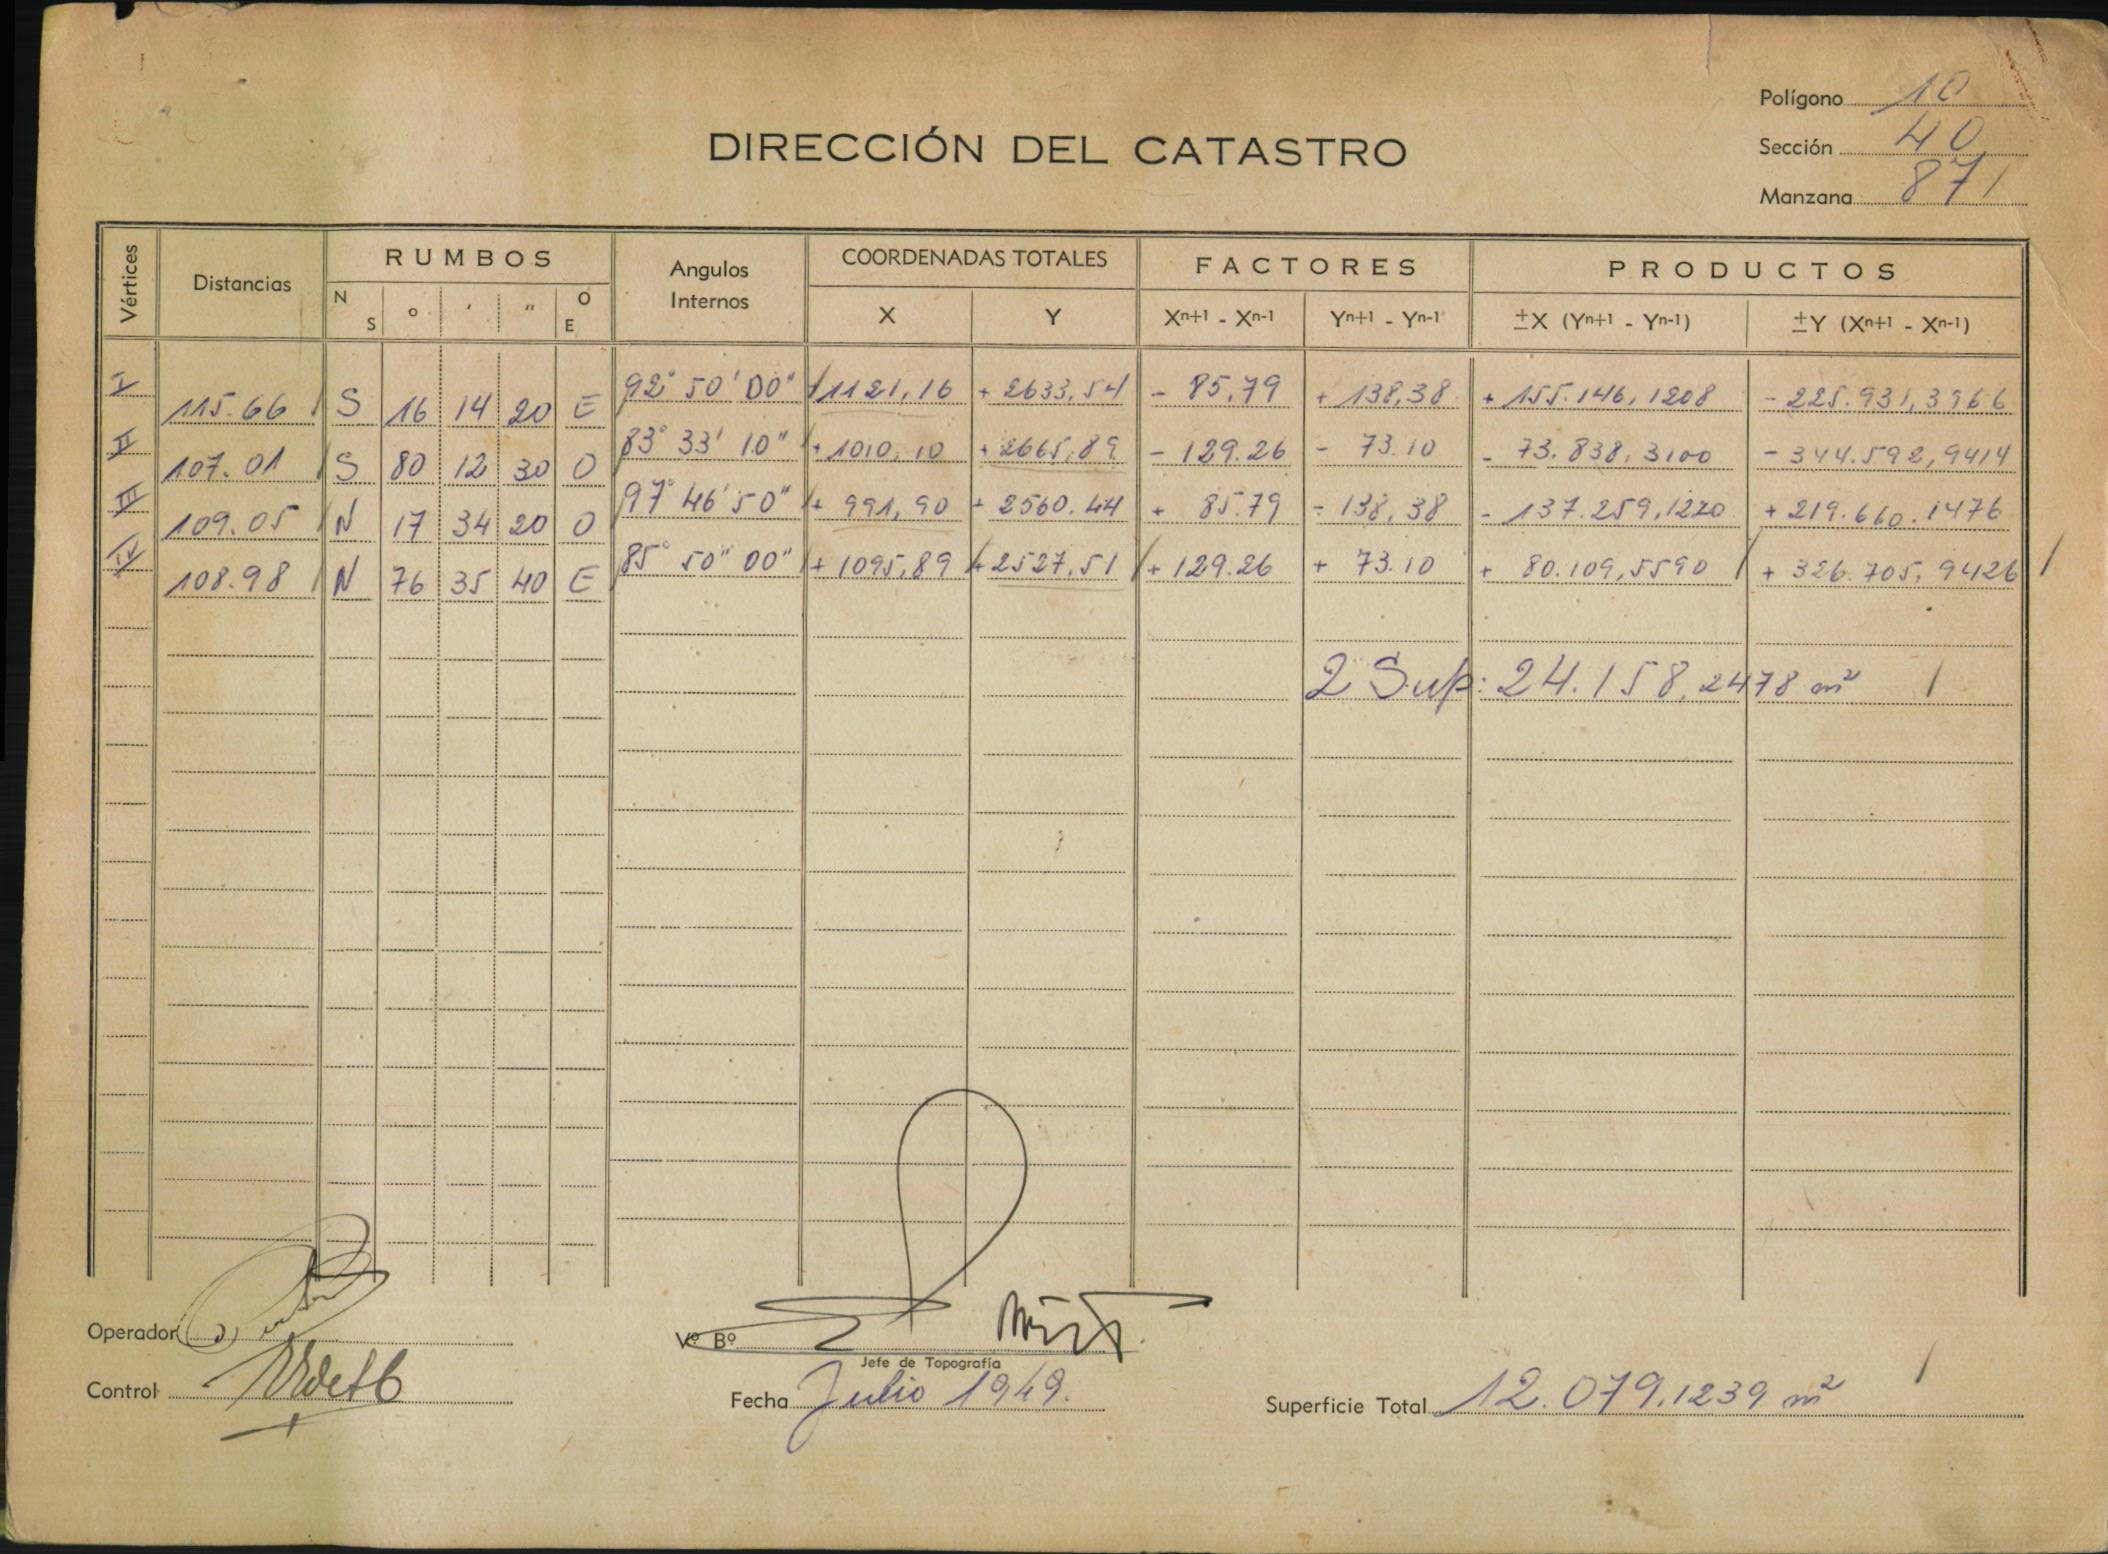 Polígono 10
DIRECCIÓN DEL CATASTRO
Sección 40
Manzana 871
Vértices Distancias RUMBOS Angulos Internos COORDENADAS TOTALES FACTORES PRODUCTOS
N S ° ' " O E X Y Xn+1 - Xn-1 Yn+1 - Yn-1 ±X (Yn+1 - Yn-1) ±Y (Xn+1 - Xn-1)
I 115.66 S 16 14 20 E 92° 50' 00" +1121,16 + 2633,54 - 85,79 + 138,38 + 155.146,1208 - 225.931,3966
II 107.01 S 80 12 30 O 83° 33' 10" +1010,10 +2665,89 - 129.26 - 73.10 - 73.838,3100 - 344.592,9414
III 109.05 N 17 34 20 O 97° 46' 50" + 991,90 + 2560.44 + 85.79 - 138,38 - 137.259,1220 + 219.660.1476
IV 108.98 N 76 35 40 E 85° 50" 00" + 1095,89 +2527,51 + 129.26 + 73.10 + 80.109,5590 + 326.705,9426
2 Sup: 24.158,2478 m²
Operador
Vº Bº
Jefe de Topografía
Control
Fecha Julio 1949.
Superficie Total 12.079,1239 m²